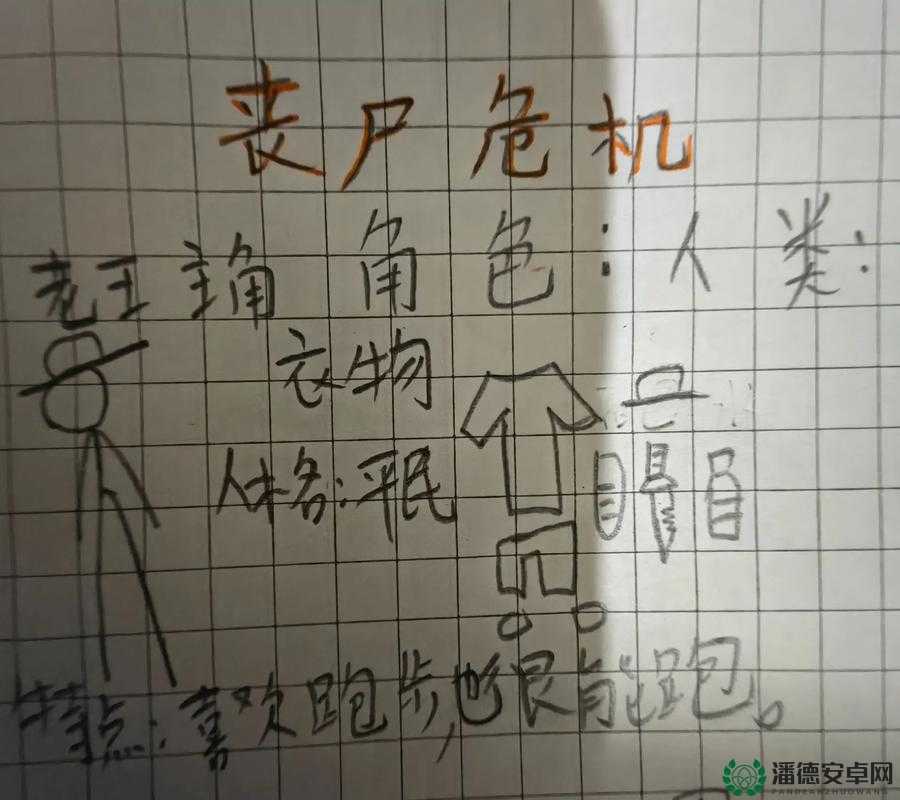 丧尸危机
老王 主角 角色:人类:
衣物
人格:平民
特点:喜欢跑步,也很能跑。
潘德安卓网
PANDEANZHUOWANG